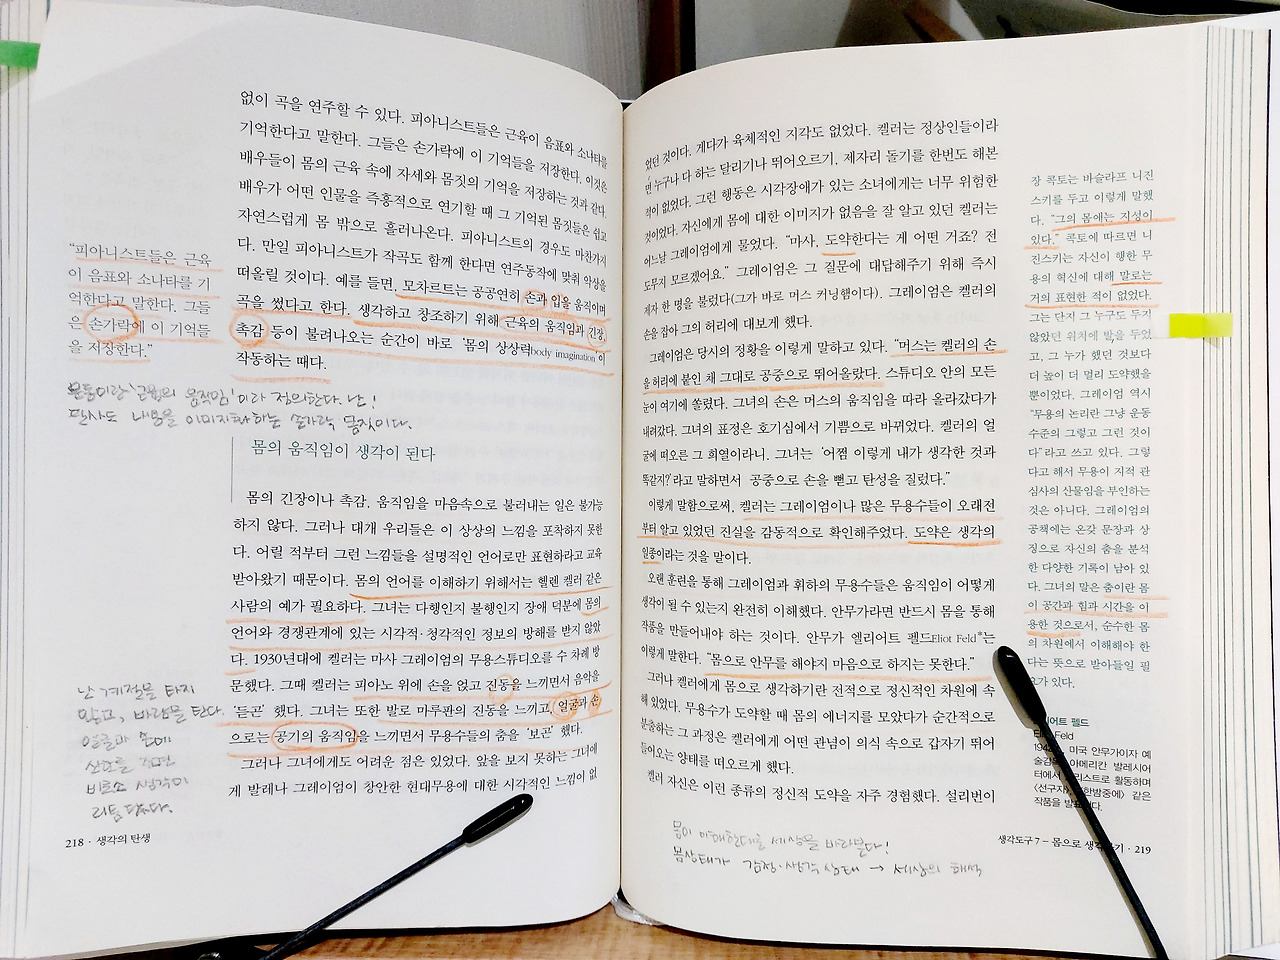 없이 곡을 연주할 수 있다. 피아니스트들은 근육이 음표와 소나타를
기억한다고 말한다. 그들은 손가락에 이 기억들을 저장한다. 이것은
배우들이 몸의 근육 속에 자세와 몸짓의 기억을 저장하는 것과 같다.
배우가 어떤 인물을 즉흥적으로 연기할 때 그 기억된 몸짓들은 쉽고
자연스럽게 몸 밖으로 흘러나온다. 피아니스트의 경우도 마찬가지
다. 만일 피아니스트가 작곡도 함께 한다면 연주동작에 맞춰 악상을
떠올릴 것이다. 예를 들면, 모차르트는 공공연히 손과 입을 움직이며
곡을 썼다고 한다. 생각하고 창조하기 위해 근육의 움직임과 긴장,
촉감 등이 불려나오는 순간이 바로 '몸의 상상력body imagination'이
작동하는 때다.
"피아니스트들은 근육
이 음표와 소나타를 기
억한다고 말한다. 그들
은 손가락에 이 기억들
을 저장한다."
운동이랑 '근육의 움직임'이라 정의한다. 난!
필사도 내용을 이미지화하는 손가락 움직이다.
몸의 움직임이 생각이 된다
몸의 긴장이나 촉감, 움직임을 마음속으로 불러내는 일은 불가능
하지 않다. 그러나 대개 우리들은 이 상상의 느낌을 포착하지 못한
다. 어릴 적부터 그런 느낌들을 설명적인 언어로만 표현하라고 교육
받아왔기 때문이다. 몸의 언어를 이해하기 위해서는 헬렌 켈러 같은
사람의 예가 필요하다. 그녀는 다행인지 불행인지 장애 덕분에 몸의
언어와 경쟁관계에 있는 시각적·청각적인 정보의 방해를 받지 않았
다. 1930년대에 켈러는 마사 그레이엄의 무용스튜디오를 수 차례 방
문했다. 그때 켈러는 피아노 위에 손을 얹고 진동을 느끼면서 음악을
'듣곤' 했다. 그녀는 또한 발로 마루판의 진동을 느끼고, 얼굴과 손
으로는 공기의 움직임을 느끼면서 무용수들의 춤을 '보곤' 했다.
그러나 그녀에게도 어려운 점은 있었다. 앞을 보지 못하는 그녀에
게 발레나 그레이엄이 창안한 현대무용에 대한 시각적인 느낌이 없
난 계절을 타지
않고, 바람을 탄다.
얼굴과 손에
산뜻을
비로소 생각이
218 · 생각의 탄생
었던 것이다. 게다가 육체적인 지각도 없었다. 켈러는 정상인들이라
면 누구나 다 하는 달리기나 뛰어오르기, 제자리 돌기를 한번도 해본
적이 없었다. 그런 행동은 시각장애가 있는 소녀에게는 너무 위험한
것이었다. 자신에게 몸에 대한 이미지가 없음을 잘 알고 있던 켈러는
어느날 그레이엄에게 물었다. "마사, 도약한다는 게 어떤 거죠? 전
도무지 모르겠어요." 그레이엄은 그 질문에 대답해주기 위해 즉시
제자 한 명을 불렀다(그가 바로 머스 커닝햄이다). 그레이엄은 켈러의
손을 잡아 그의 허리에 대보게 했다.
그레이엄은 당시의 정황을 이렇게 말하고 있다. "머스는 켈러의 손
을 허리에 붙인 채 그대로 공중으로 뛰어올랐다. 스튜디오 안의 모든
눈이 여기에 쏠렸다. 그녀의 손은 머스의 움직임을 따라 올라갔다가
내려갔다. 그녀의 표정은 호기심에서 기쁨으로 바뀌었다. 켈러의 얼
굴에 떠오른 그 희열이라니. 그녀는 '어쩜 이렇게 내가 생각한 것과
똑같지?'라고 말하면서 공중으로 손을 뻗고 탄성을 질렀다."
이렇게 말함으로써, 켈러는 그레이엄이나 많은 무용수들이 오래전
부터 알고 있었던 진실을 감동적으로 확인해주었다. 도약은 생각의
일종이라는 것을 말이다.
오랜 훈련을 통해 그레이엄과 휘하의 무용수들은 움직임이 어떻게
생각이 될 수 있는지 완전히 이해했다. 안무가라면 반드시 몸을 통해
작품을 만들어내야 하는 것이다. 안무가 엘리어트 펠드Eliot Feld*는
이렇게 말한다. "몸으로 안무를 해야지 마음으로 하지는 못한다."
그러나 켈러에게 몸으로 생각하기란 전적으로 정신적인 차원에 속
해 있었다. 무용수가 도약할 때 몸의 에너지를 모았다가 순간적으로
분출하는 그 과정은 켈러에게 어떤 관념이 의식 속으로 갑자기 뛰어
들어오는 양태를 떠오르게 했다.
켈러 자신은 이런 종류의 정신적 도약을 자주 경험했다. 설리번이
장 콕토는 바슬라프 니진
스키를 두고 이렇게 말했
다. "그의 몸에는 지성이
있다." 콕토에 따르면 니
진스키는 자신이 행한 무
용의 혁신에 대해 말로는
거의 표현한 적이 없었다.
그는 단지 그 누구도 두지
않았던 위치에 발을 두었
고, 그 누가 했던 것보다
더 높이 더 멀리 도약했을
뿐이었다. 그레이엄 역시
"무용의 논리란 그냥 운동
수준의 그렇고 그런 것이
다"라고 쓰고 있다. 그렇
다고 해서 무용이 지적 관
심사의 산물임을 부인하는
것은 아니다. 그레이엄의
공책에는 온갖 문장과 상
징으로 자신의 춤을 분석
한 다양한 기록이 남아 있
다. 그녀의 말은 춤이란 몸
이 공간과 힘과 시간을 이
용한 것으로서, 순수한 몸
의 차원에서 이해해야 한
다는 뜻으로 받아들일 필
요가 있다.
리어트 펠드
Feld
미국 안무가이자 예
술감독. 아메리칸 발레시어
터에서 리스트로 활동하며
<선구자> 한밤중에> 같은
작품을 발표
몸이 이해한대로 세상을 바라본다!
몸상태가 감정·생각 상태 → 세상의 해석
생각도구 7 - 몸으로 생각 기 · 219